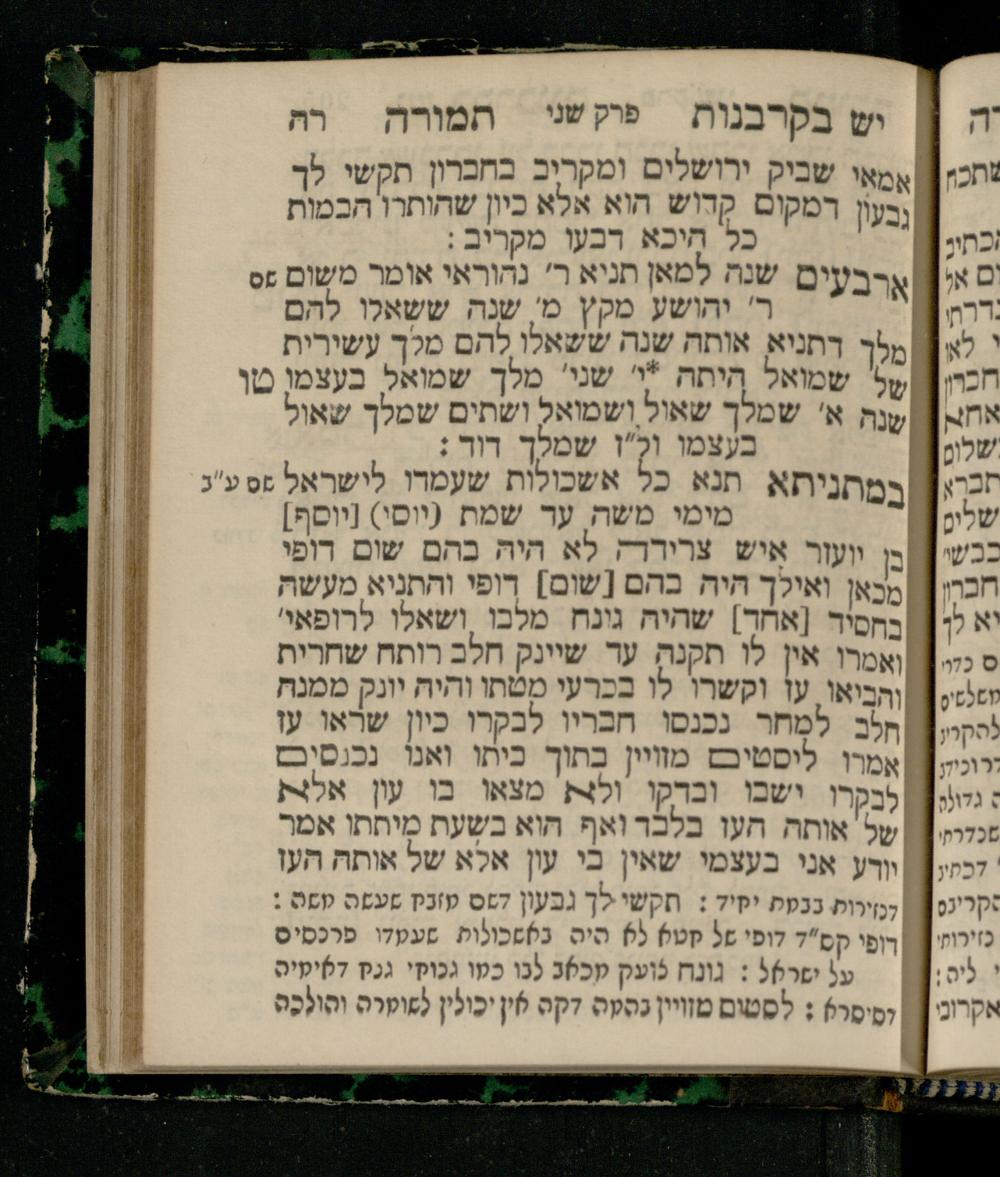 יש בקרבנות פרק שני תמורה רה
אמאי שביק ירושלים ומקריב בחברון תקשי לך
גבעון דמקום קדוש הוא אלא כיון שהותרו הבמות
כל היכא דבעו מקריב :
ארבעים שנה למאן תניא ר׳ נהוראי אומר משום שם
ר׳ יהושע מקץ מ׳ שנה ששאלו להם
מלך דתניא אותה שנה ששאלו להם מלך עשירית
של שמואל היתה *י׳ שני׳ מלך שמואל בעצמו טו
שנה א׳ שמלך שאול ושמואל ושתים שמלך שאול
בעצמו ול״ז שמלך דוד :
במתניתא תנא כל אשכולות שעמדו לישראל שם ע״ב
מימי משה עד שמת (יוסי) [יוסף]
בן יועזר איש צרידה לא היה בהם שום דופי
מכאן ואילך היה בהם [שום] דופי והתניא מעשה
בחסיד [אחד] שהיה גונח מלבו ושאלו לרופאי׳
ואמרו אין לו תקנה עד שיינק חלב רותח שחרית
והביאו עז וקשרו לו בכרעי מטתו והיה יונק ממנה
חלב למחר נכנסו חבריו לבקרו כיון שראו עז
אמרו ליסטים מזויין בתוך ביתו ואנו נכנסים
לבקרו ישבו ובדקו ולא מצאו בו עון אלא
של אותה העז בלבד ואף הוא בשעת מיתתו אמר
יודע אני בעצמי שאין בי עון אלא של אותה העז
דכזירות בבמת יחיד : תקשי לך גבעון דשם מזבח שעשה משה :
דופי קס״ד דופי של חטא לא היה באשכולות שעמדו פרנסים
על ישראל : גונח צועק מכאב לבו כמו גנוחי גנח דאימיה
דסיסרא : לסטים מזויין בהמה דקה אין יכולין לשומרה והולכה